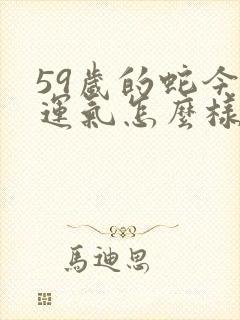 59歲的蛇今
運氣怎麼樣
馬迪思